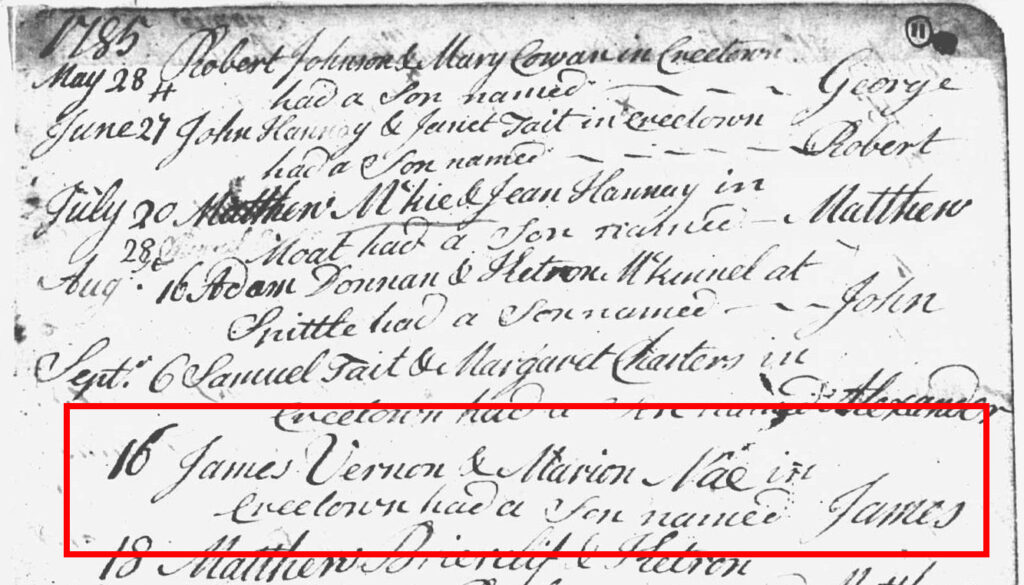 1785
11
May 28 Robert Johnson & Mary Cowan in Creetown
had a Son named George
June 27 John Hannay & Janet Tait in Creetown
had a Son named Robert
July 20 Matthew Mckie & Jean Hannay in
28 Moat had a Son named Matthew
Augt. 16 Adam Donnan & Ketron Mckinnel at
Spittle had a Son named John
Septr. 6 Samuel Tait & Margaret Charters in
Creetown had a Son named Alexander
16 James Vernon & Marion Nae in
Creetown had a Son named James
18 Matthew & Ketron